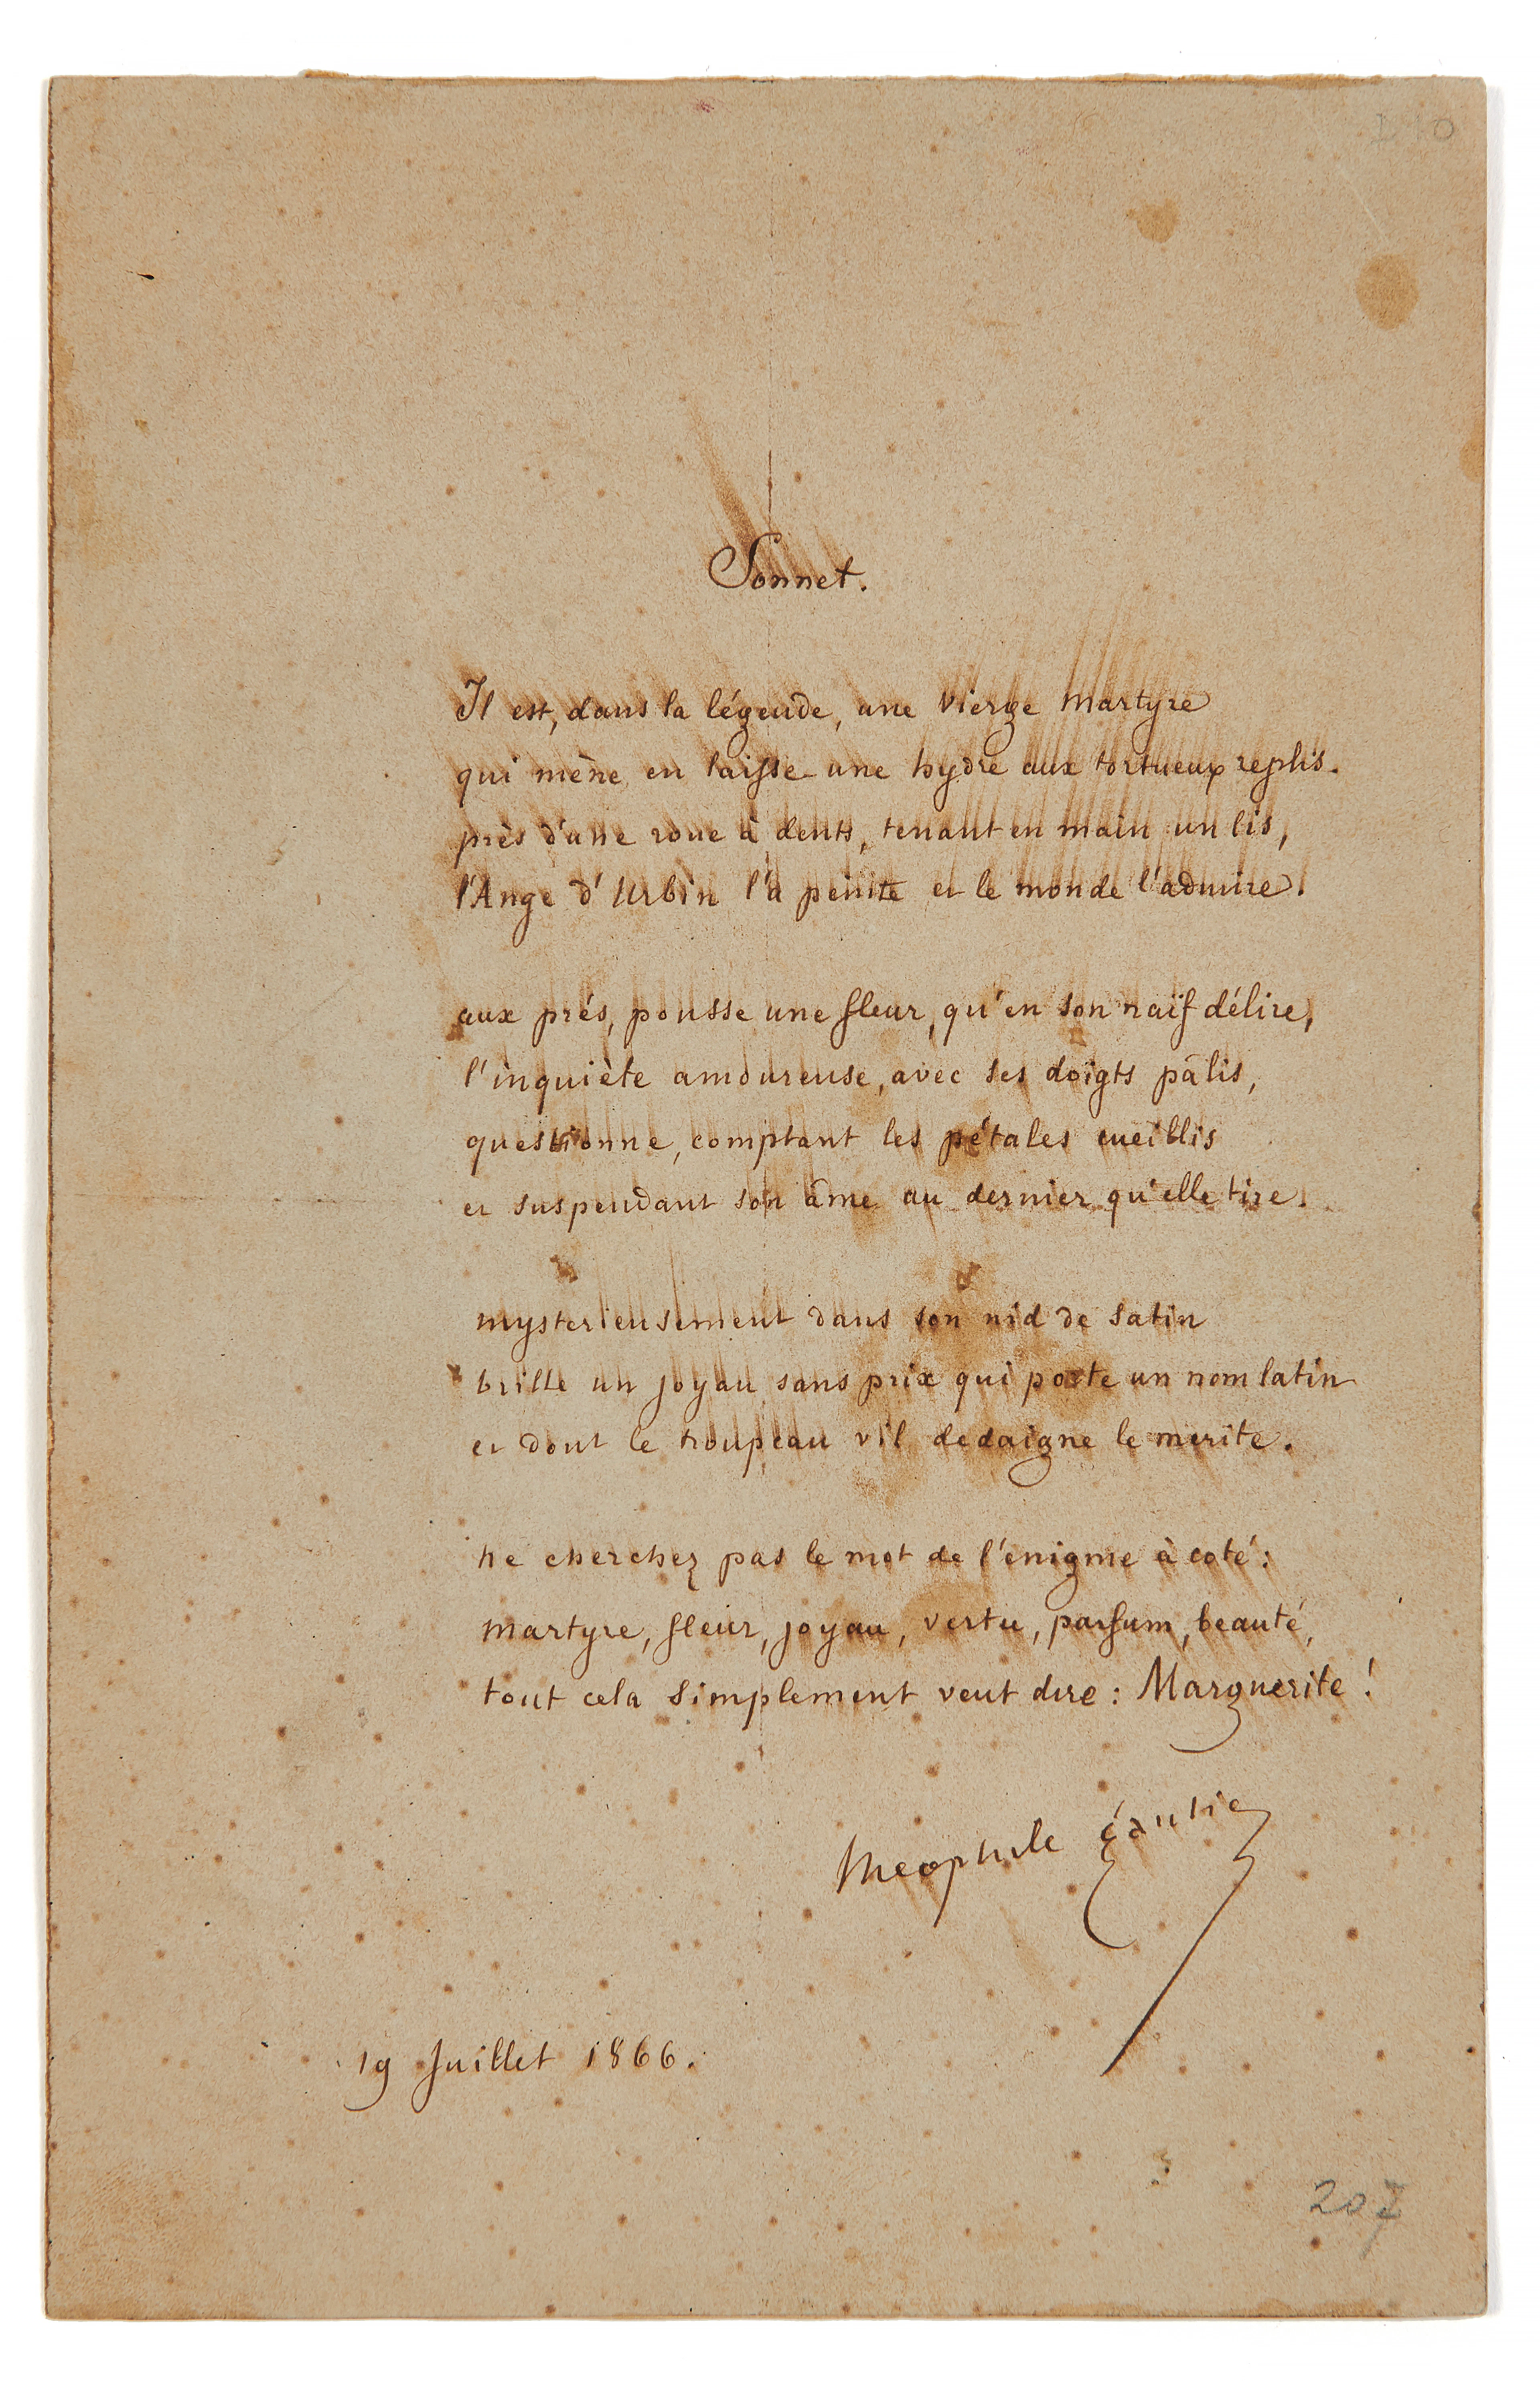 Sonnet.
Il est, dans la légende, une vierge martyre
qui mène en laisse une hydre aux tortueux replis.
près d'une roue à dents, tenant en main un lis,
l'Ange d'Urbin l'a peinte et le monde l'admire.
aux prés, pousse une fleur, qu'en son naïf délire,
l'inquiète amoureuse, avec ses doigts pâlis,
questionne, comptant les pétales cueillis
et suspendant son âme au dernier qu'elle tire.
mysterieusement dans son nid de satin
brille un joyau sans prix qui porte un nom latin
et dont le troupeau vil dedaigne le merite.
ne cherchez pas le mot de l'énigme à coté:
martyre, fleur, joyau, vertu, parfum, beauté,
tout cela simplement veut dire: Marguerite!
theophile Gautier
19 Juillet 1866.
207